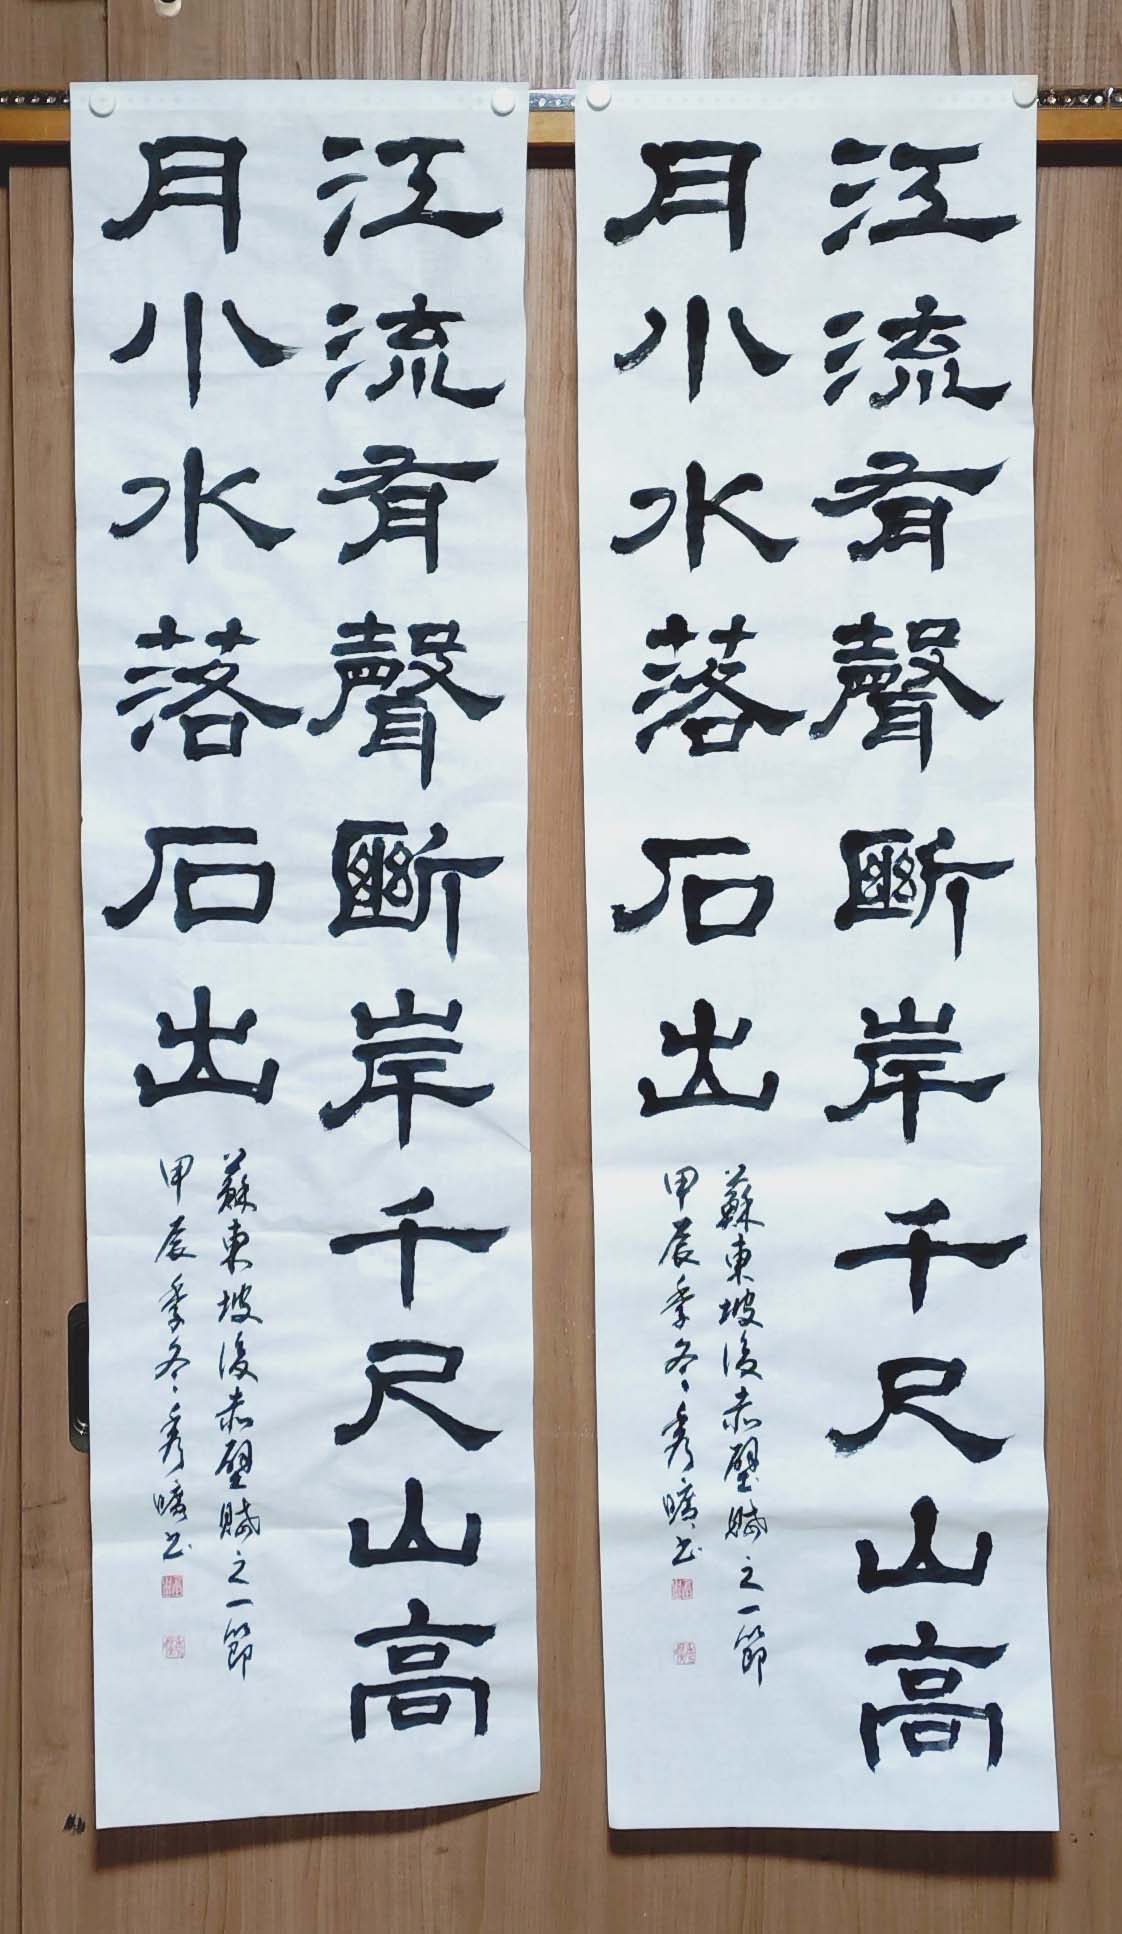 江流有聲斷岸千尺山高
月小水落石出
蘇東坡後赤壁賦之一節
甲辰季冬秀曠書
江流有聲斷岸千尺山高
月小水落石出
蘇東坡後赤壁賦之一節
甲辰季冬秀曠書